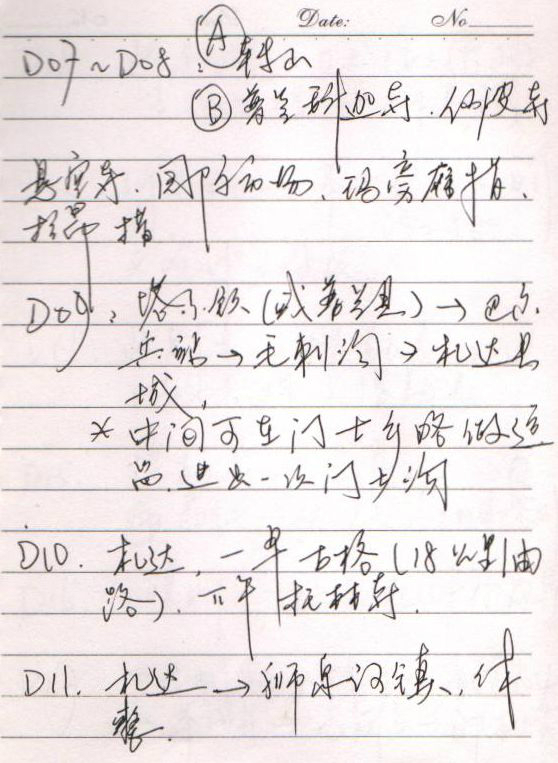 Date: No
D07～D08: Ⓐ 转山
Ⓑ 普兰 科迦寺、仙度寺
悬空寺、国际市场、玛旁雍措、
拉昂措
D09: 塔尔钦(或普兰县)→巴尔
兵站→毛刺沟→札达县
城,
*中间可在门士乡略做逗
留,进去一次门士沟
D10. 札达,一早古格(18公里/土
路).下午托林寺.
D11. 札达→狮泉河镇,休
整.